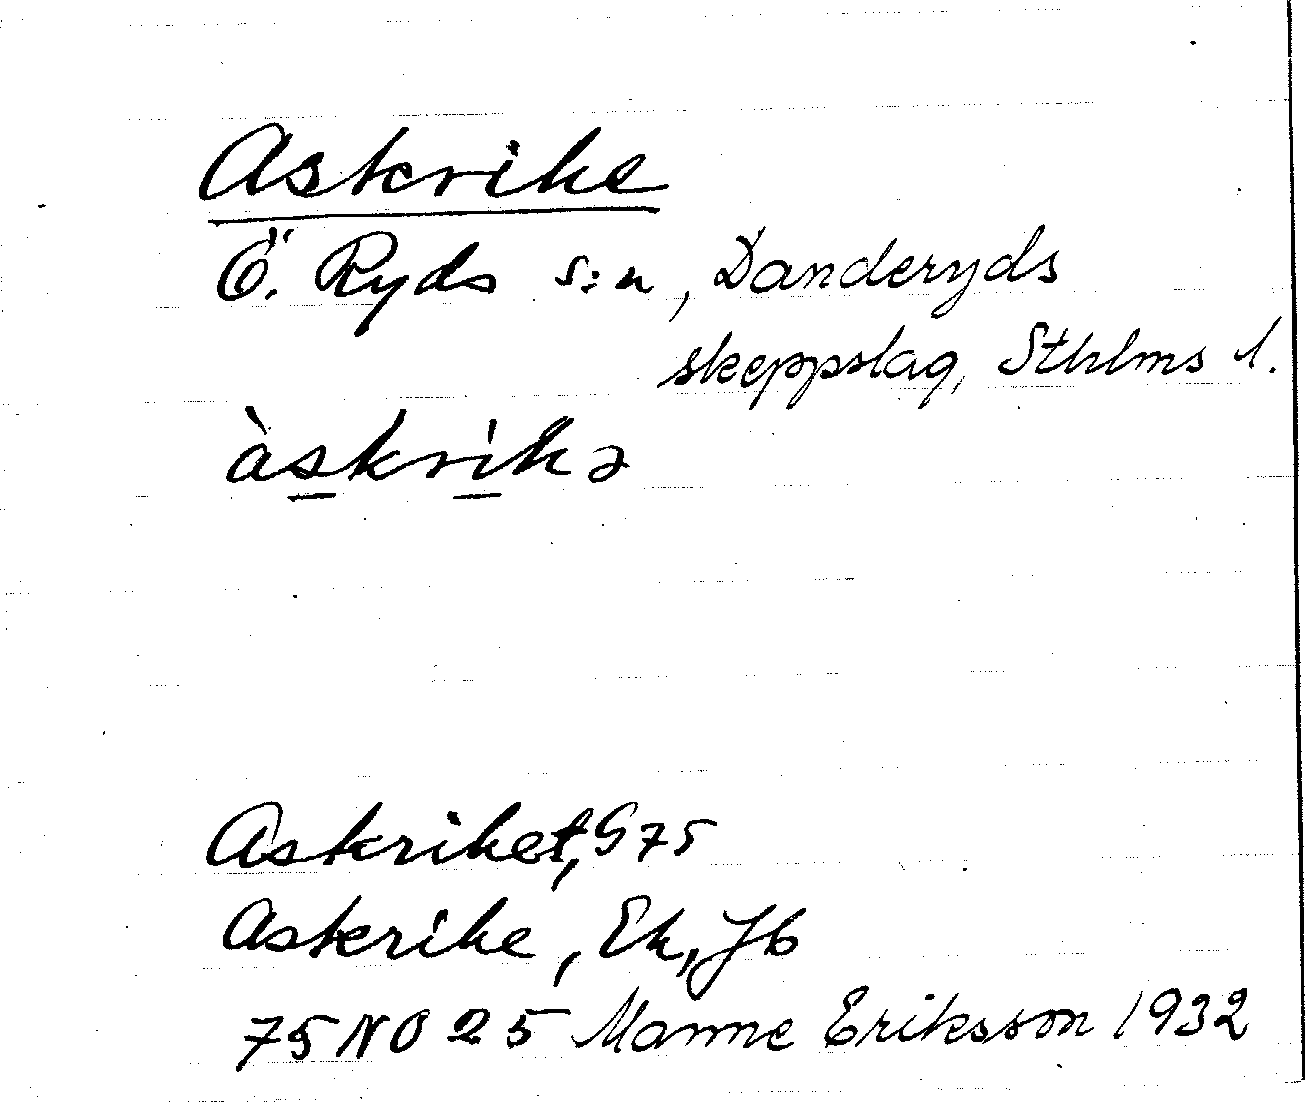 Askrike
Ö. Ryds s:n, Danderyds
skeppslag, Sthlms l.
àskrìkə
Askriket, G 75
Askrike, Ek, Jb
75 NO 25 Manne Eriksson 1932